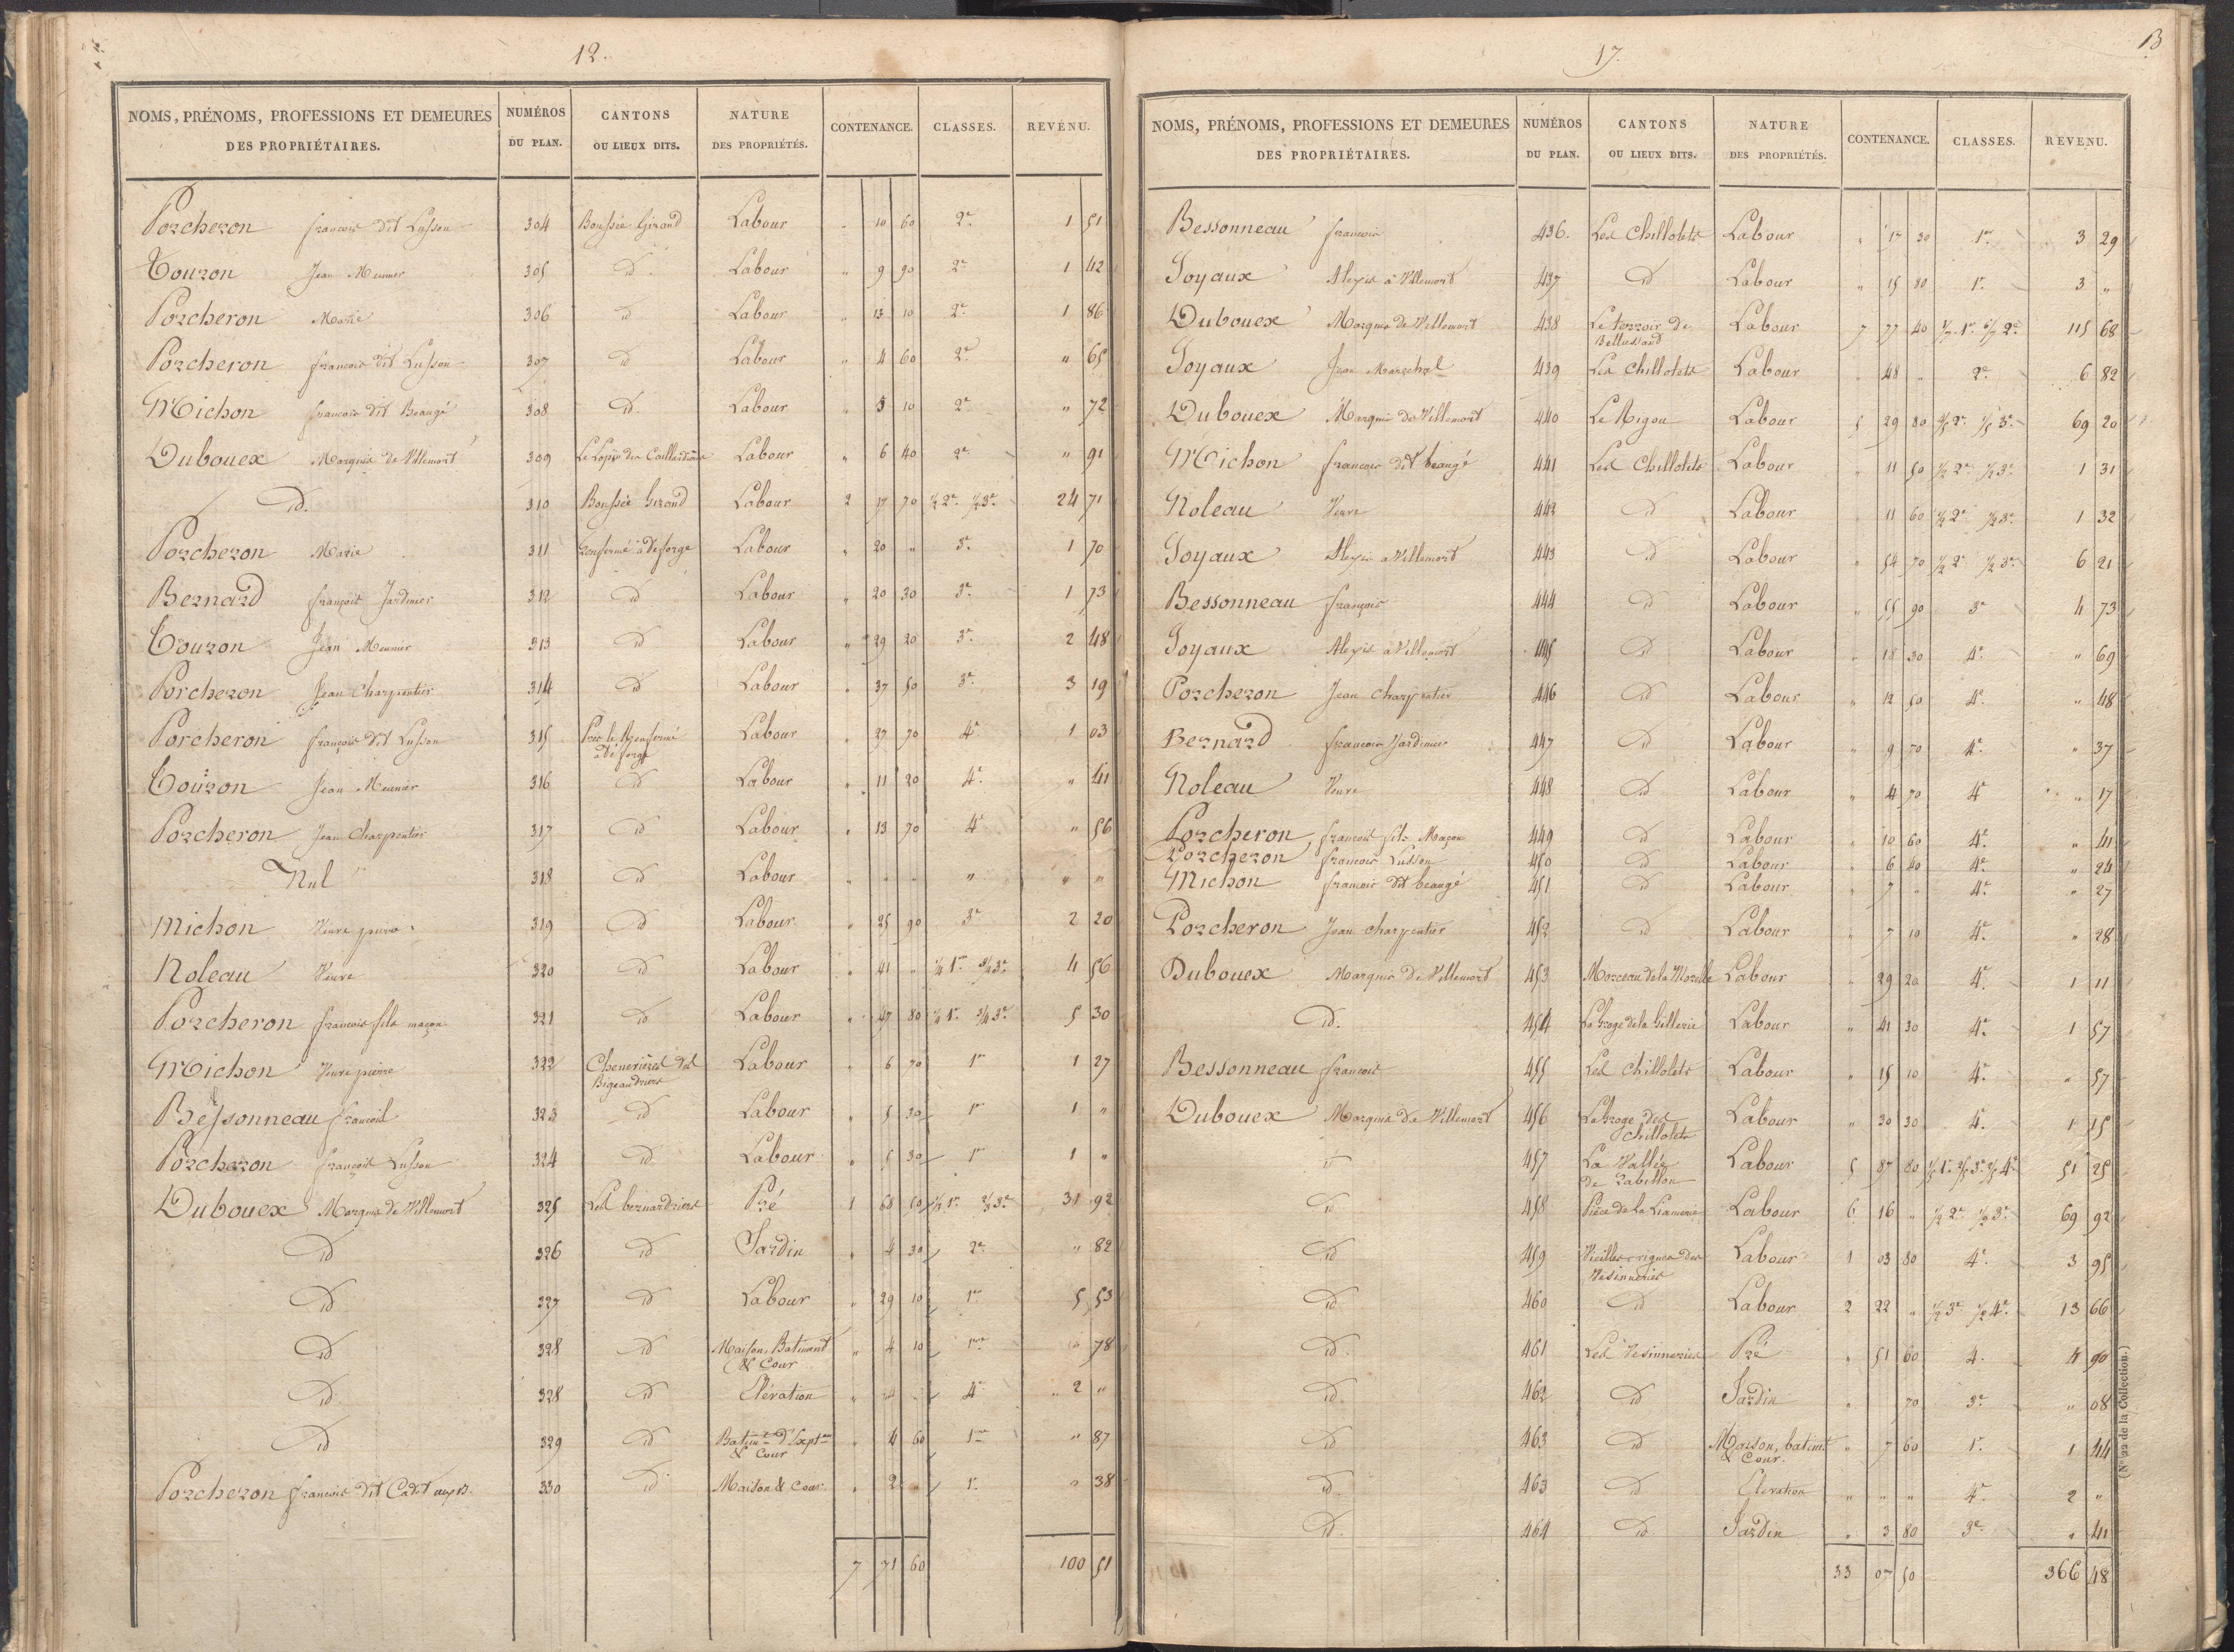 12.
NOMS, PRÉNOMS, PROFESSIONS ET DEMEURES DES PROPRIÉTAIRES. NUMÉROS DU PLAN. CANTONS OU LIEUX DITS. NATURE DES PROPRIÉTÉS. CONTENANCE. CLASSES. REVENU.
Porcheron francois dit Lusson 304 Girand Labour " 10 60 2e 1 51
Touzon Jean Meunier 305 id Labour " 9 90 2e 1 42
Porcheron Marie 306 id Labour " 13 10 2e 1 86
Porcheron francois dit Lusson 307 id Labour " 4 60 2e " 65
Michon francois dit Beaugé 308 id Labour " 5 10 2e " 72
Dubouex Marquis de Villemort 309 Labour " 6 40 2e " 91
id. 310 Girand Labour 2 17 70 1/2 2e 1/2 3e 24 71
Porcheron Marie 311 Labour " 20 " 3e 1 70
Bernard françois Jardinier 312 id Labour " 20 30 3e 1 73
Touzon Jean Meunier 313 id Labour " 29 20 3e 2 48
Porcheron Jean Charpentier 314 id Labour " 37 50 3e 3 19
Porcheron françois dit Lusson 315 Labour " 27 70 4e 1 03
Touzon Jean Meunier 316 id Labour " 11 20 4e " 41
Porcheron Jean Charpentier 317 id Labour " 13 70 4e " 56
Nul 318 id Labour " " " " " "
Michon Veuve 319 id Labour " 25 90 3e 2 20
Roleau Veuve 320 id Labour " 41 " 1/4 1re 3/4 3e 4 56
Porcheron francois fils maçon 321 id Labour " 47 80 1/4 1re 3/4 3e 5 30
Michon Veuve pierre 322 Cheneviere des Bigeaudriers Labour " 6 70 1re 1 27
Bessonneau francois 323 id Labour " 5 30 1re 1 "
Porcheron françois Lusson 324 id Labour " 5 30 1re 1 "
Dubouex Marquis de Villemort 325 Les bernardriers Pré 1 68 50 1/3 1re 2/3 3e 31 92
id 326 id Jardin " 4 30 2e " 82
id 327 id Labour " 29 10 1re 5 53
id 328 id Maison, Batiment & Cour " 4 10 1re " 78
id 328 id Elévation " " " 4e 2 "
id 329 id & Cour " 4 60 1re " 87
Porcheron francois dit Cadet 330 id Maison & Cour " 2 " 1re " 38
7 71 60 100 51
17.
13
NOMS, PRÉNOMS, PROFESSIONS ET DEMEURES DES PROPRIÉTAIRES. NUMÉROS DU PLAN. CANTONS OU LIEUX DITS. NATURE DES PROPRIÉTÉS. CONTENANCE. CLASSES. REVENU.
Bessonneau francois 436. Les Chillolets Labour " 17 30 1re 3 29
Joyaux Alexis à Villemort 437 id Labour " 15 80 1re 3 "
Dubouex Marquis de Villemort 438 Le terroir de Labour 7 77 40 1/7 1re 6/7 2e 115 68
Joyaux Jean Marechal 439 Les Chillolets Labour " 48 " 2e 6 82
Dubouex Marquis de Villemort 440 Le Rigou Labour 5 29 80 4/5 2e 1/5 3e 69 20
Michon francois dit beaugé 441 Les Chillolets Labour " 11 50 1/2 2e 1/2 3e 1 31
Roleau Veuve 442 id Labour " 11 60 1/2 2e 1/2 3e 1 32
Joyaux Alexis à Villemort 443 id Labour " 54 70 1/2 2e 1/2 3e 6 21
Bessonneau françois 444 id Labour " 55 90 3e 4 73
Joyaux Alexis à Villemort 445 id Labour " 18 30 4e " 69
Porcheron Jean charpentier 446 id Labour " 12 50 4e " 48
Bernard francois Jardinier 447 id Labour " 9 70 4e " 37
Roleau Veuve 448 id Labour " 4 70 4e " 17
Porcheron francois fils Maçon 449 id Labour " 10 60 4e " 41
Porcheron francois Lusson 450 id Labour " 6 40 4e " 24
Michon francois dit beaugé 451 id Labour " 7 " 4e " 27
Porcheron Jean charpentier 452 id Labour " 7 10 4e " 28
Dubouex Marquis de Villemort 453 Morceau de la Labour " 29 20 4e 1 11
id. 454 La Groge de la Gillerie Labour " 41 30 4e 1 57
Bessonneau francois 455 Les Chillolets Labour " 15 10 4e " 57
Dubouex Marquis de Villemort 456 La Groge des Chillolets Labour " 30 30 4e 1 15
id 457 La Vallée de Labour 5 87 80 1/5 1re 2/5 3e 2/5 4e 51 25
id 458 Pièce de la Labour 6 16 " 1/2 2e 1/2 3e 69 92
id 459 Vieilles vignes des Vesinneries Labour 1 03 80 4e 3 95
id 460 id Labour 2 22 " 1/2 3e 1/2 4e 13 66
id. 461 Les Vesinneries Pré " 51 60 4. 4 90
id. 462 id Jardin " 70 3e " 08
id 463 id Maison, batimt & Cour. " 7 60 1re 1 44
id. 463 id Elevation " " " 4e 2 "
id. 464 id Jardin " 3 80 3e " 41
33 07 50 366 48
(N° 22 de la Collection.)